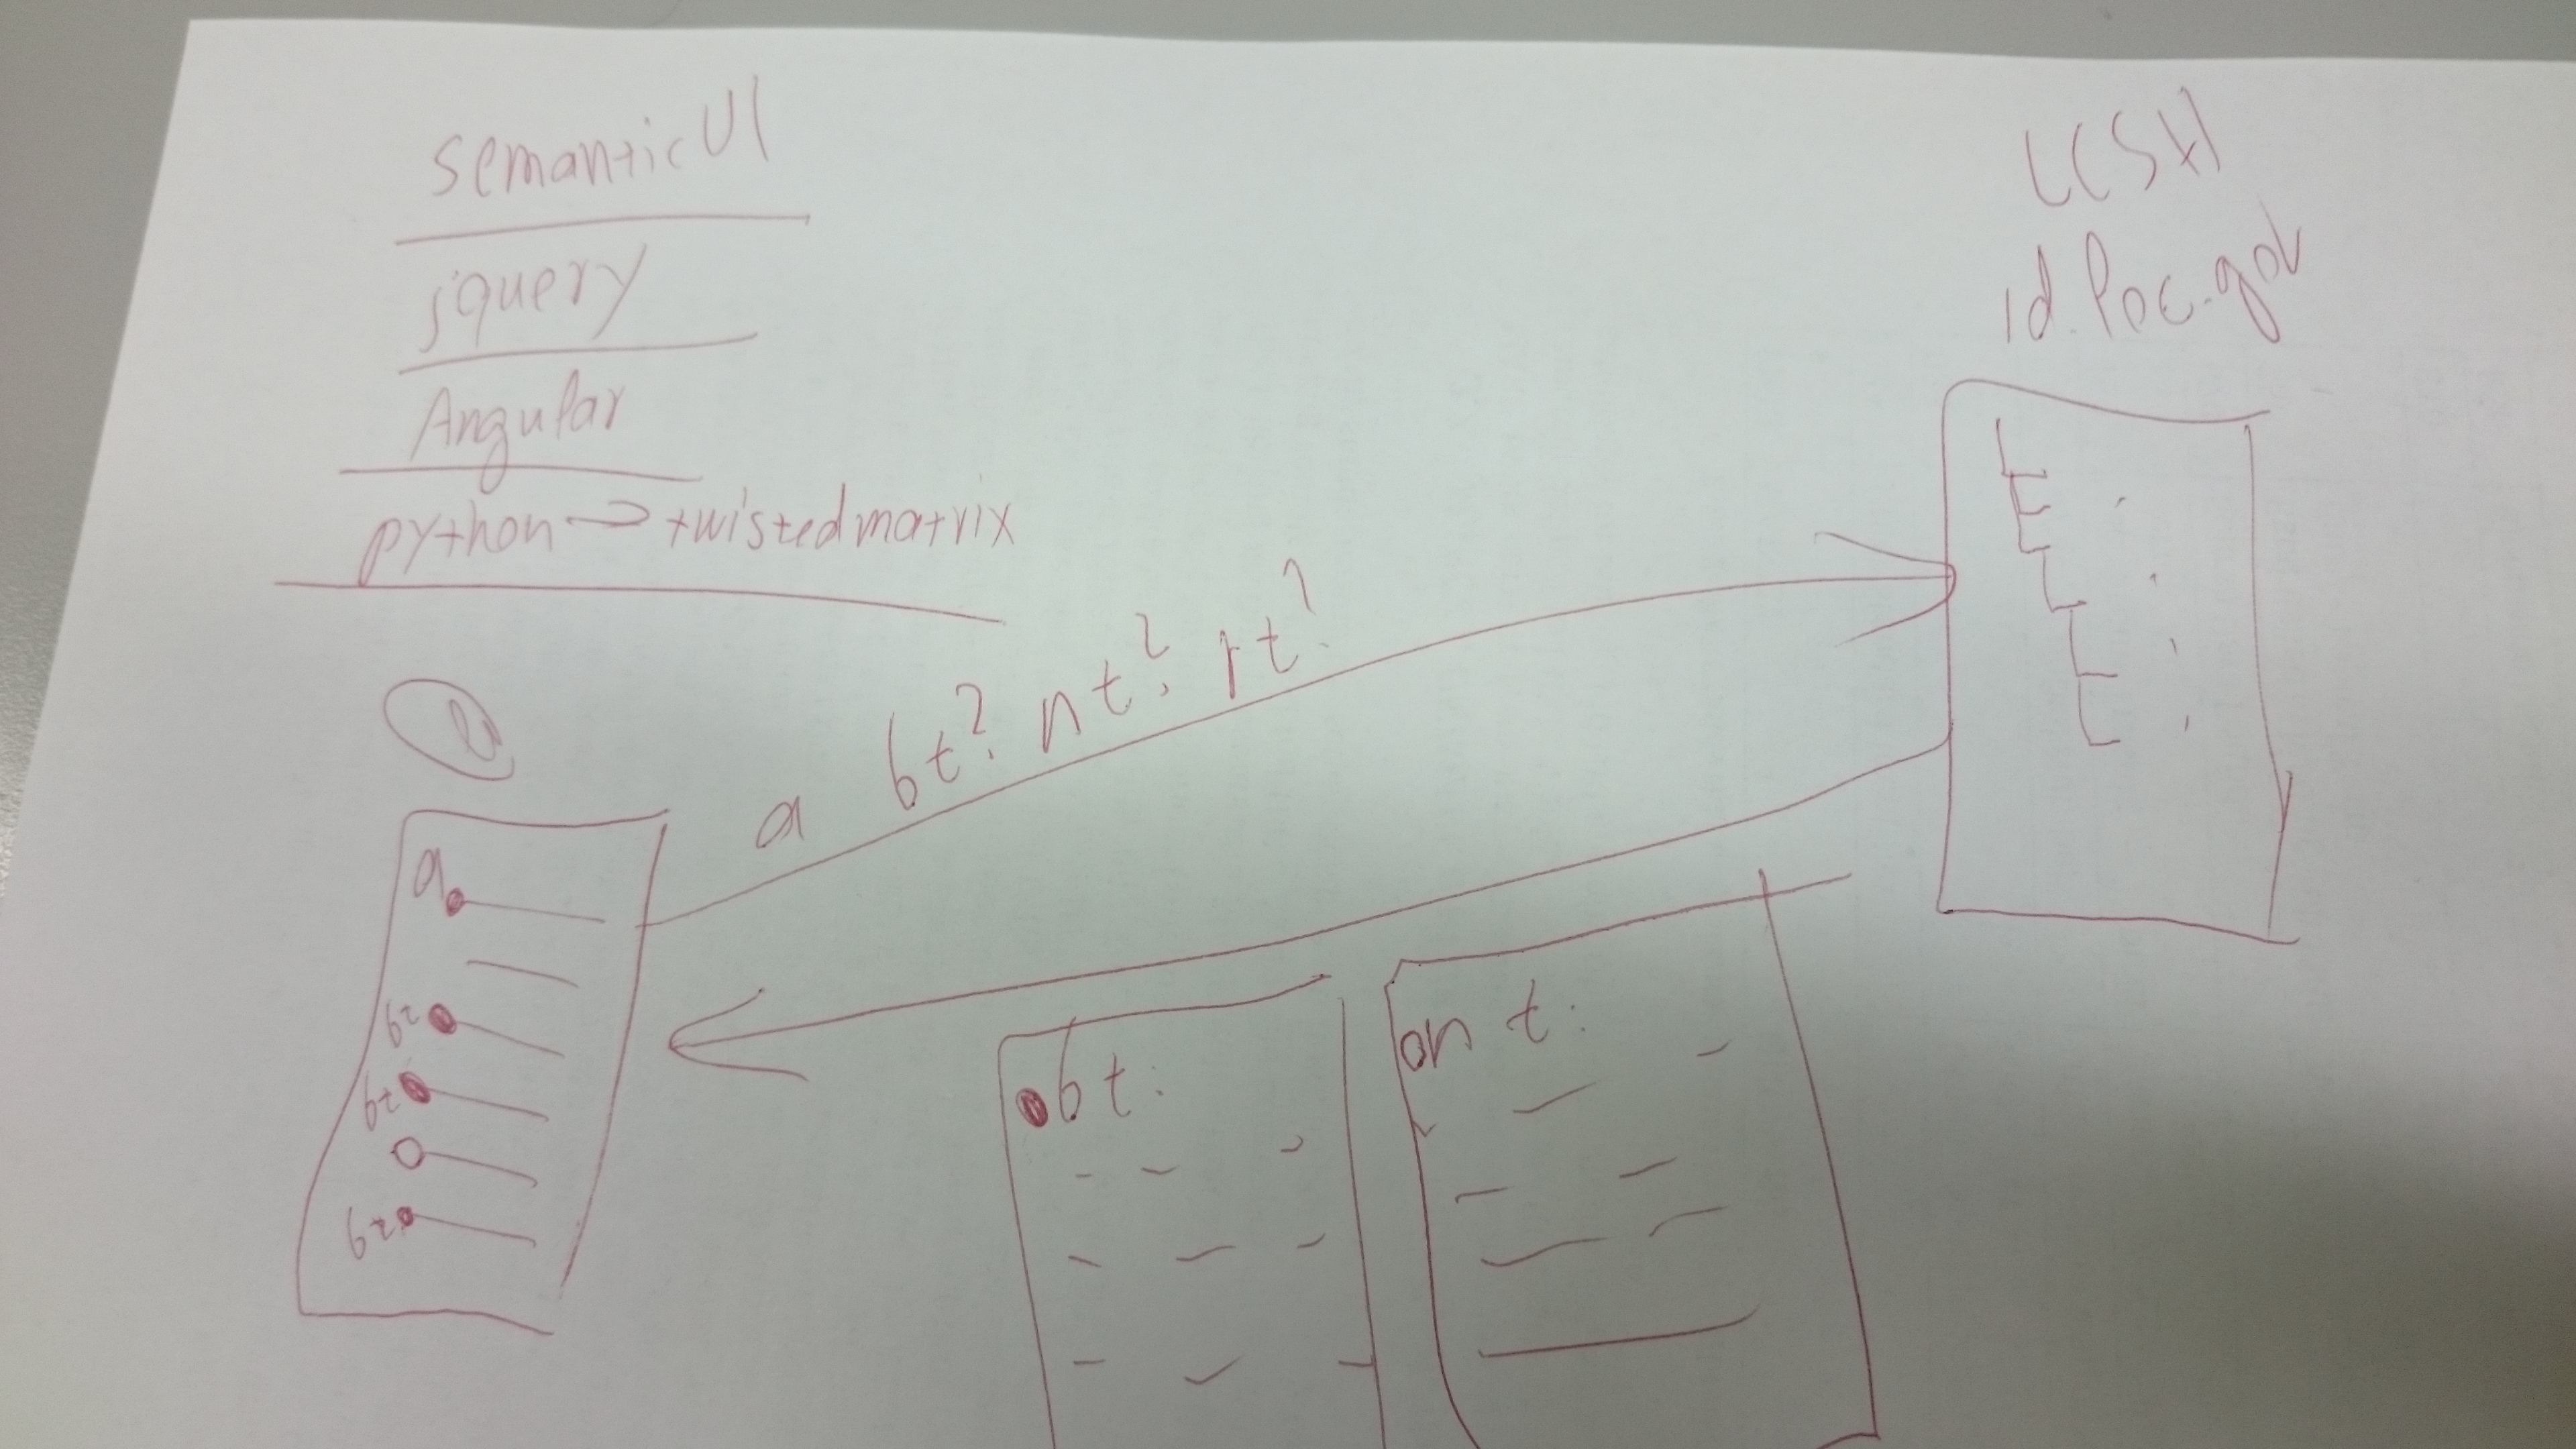 semantic UI
jquery
Angular
python → twistedmatrix
LCSH
id.loc.gov
a bt? nt? rt?
a
bt:
nt: